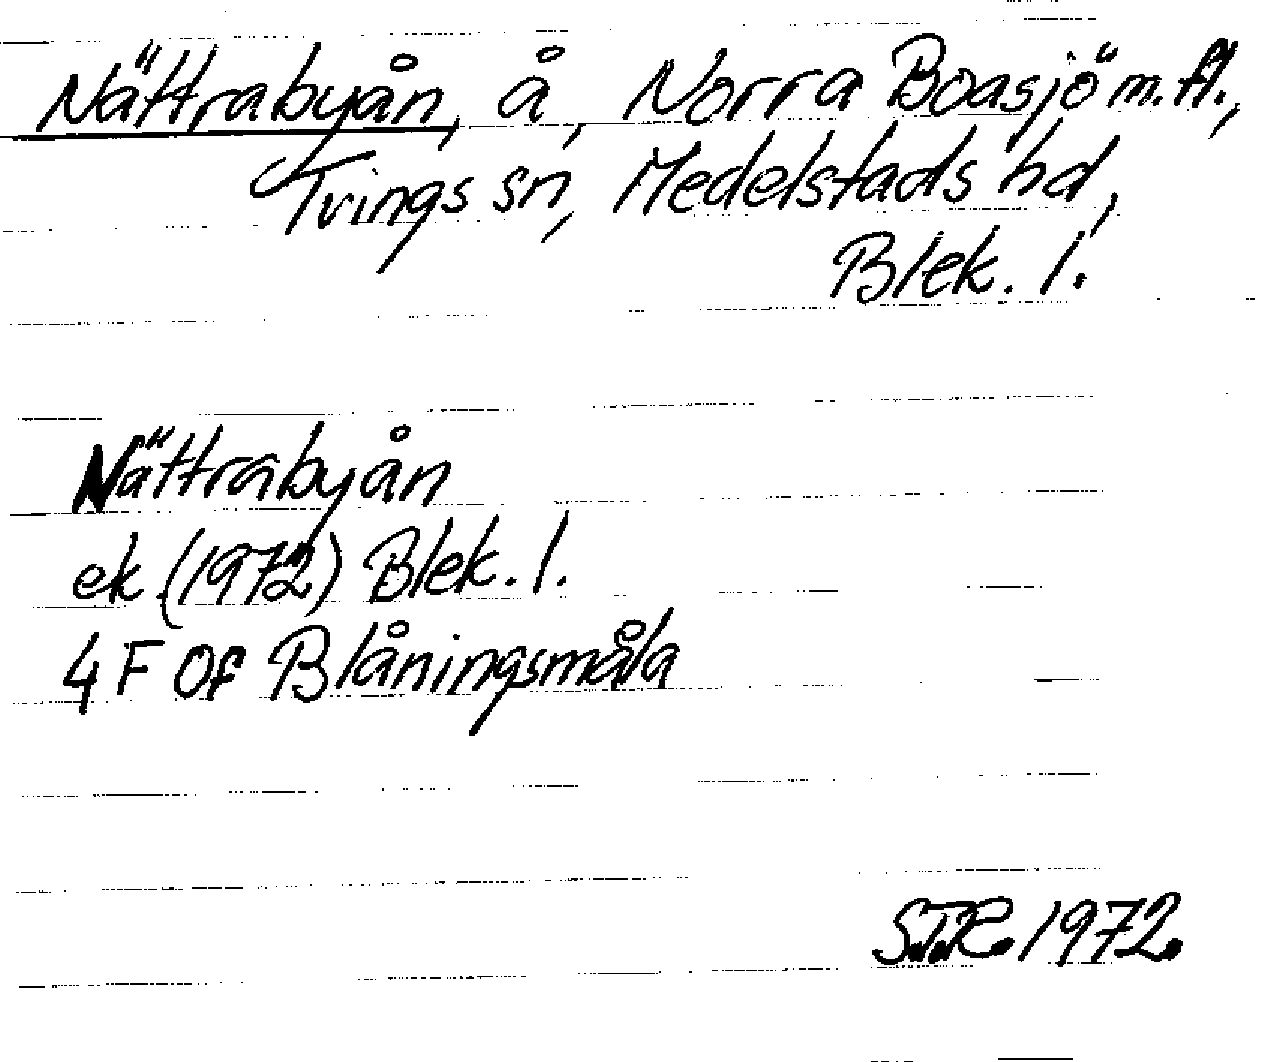 Nättrabyån, å, Norra Boasjö m.fl.,
Tvings sn, Medelstads hd,
Blek. l.
Nättrabyån
ek (1972) Blek. l.
4 F Of Blåningsmåla
1972.